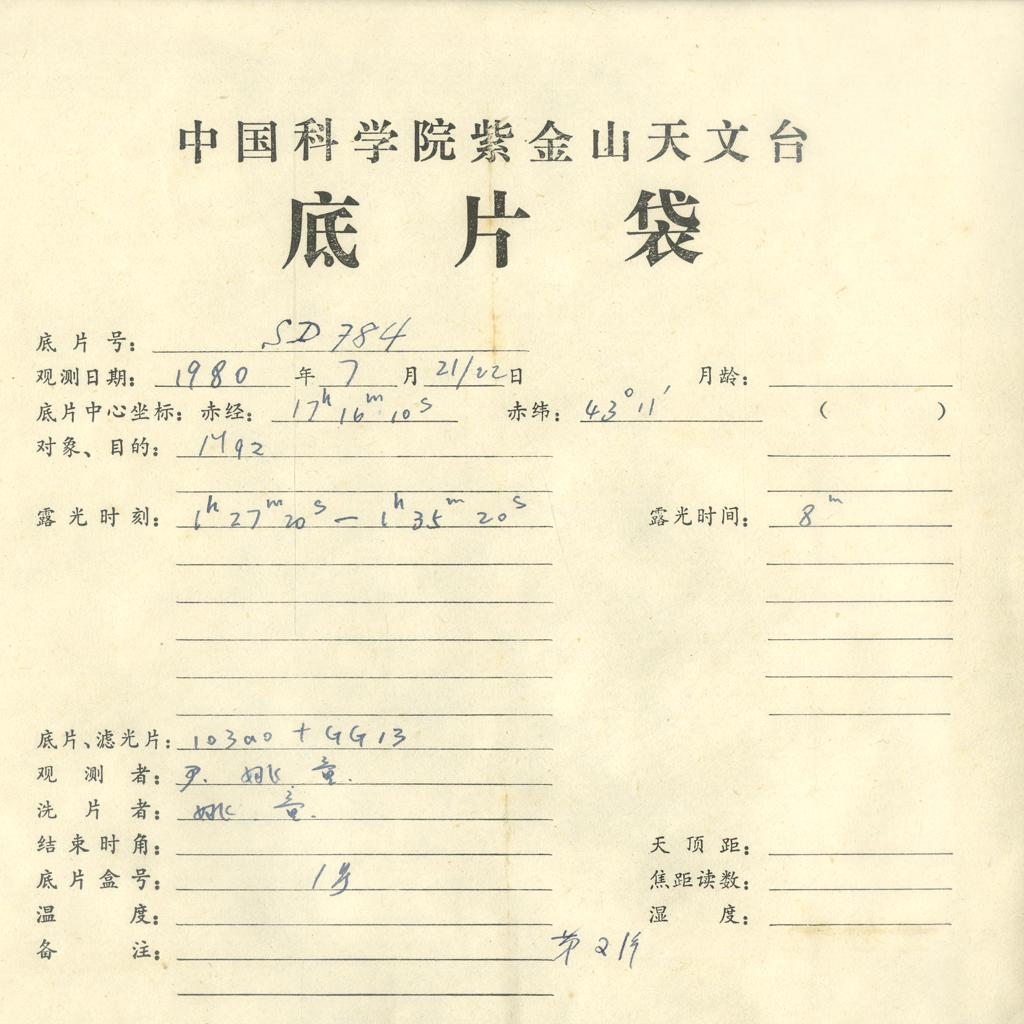 中国科学院紫金山天文台
底片袋
底片号: SD 784
观测日期: 1980 年 7 月 21/22 日 月龄:
底片中心坐标: 赤经: 17h 16m 10s 赤纬: 43° 11′ ( )
对象、目的: M92
露光时刻: 1h 27m 20s — 1h 35m 20s 露光时间: 8m
底片、滤光片: 103aO + GG13
观测者: 尹. 姚 童.
洗片者: 姚 童.
结束时角: 天顶距:
底片盒号: 1号 焦距读数:
温度: 湿度:
备注: 第2片